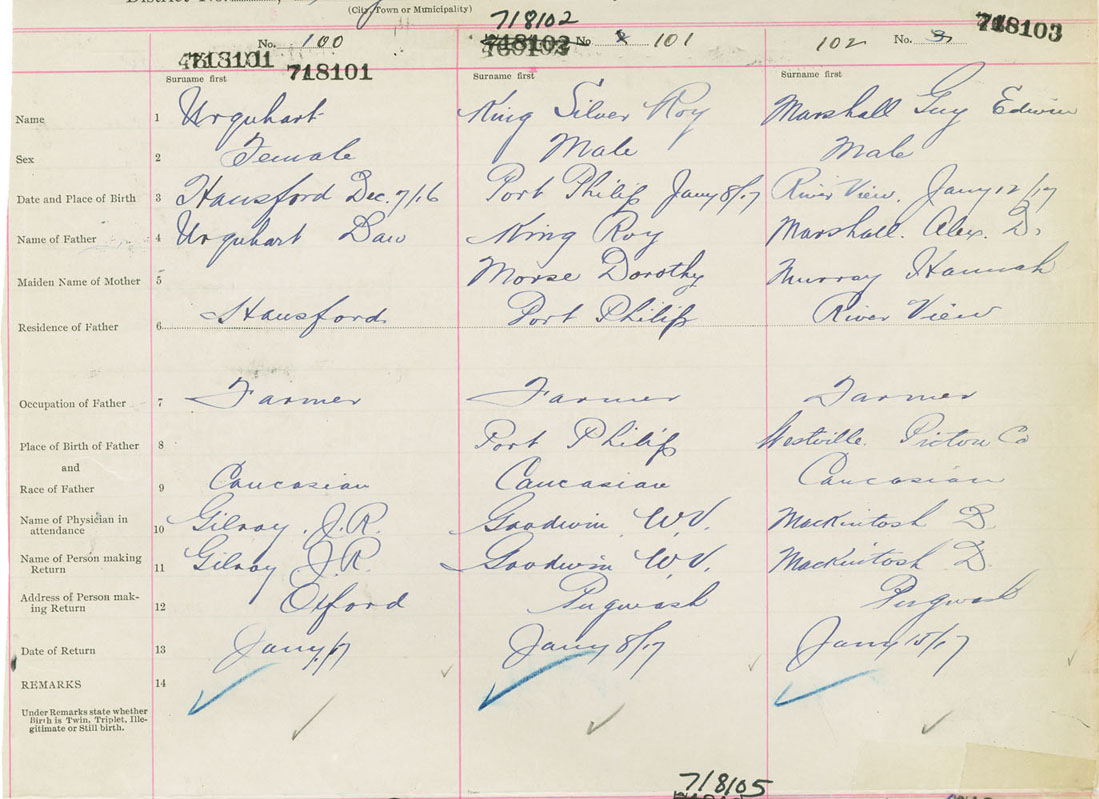 District No.
(City, Town or Municipality)
718102
718103
No. 100
718102 No. 101
102 No. 3
718101
718101
Surname first
Surname first
Surname first
Name 1 Urquhart King Silver Roy Marshall Guy Edwin
Sex 2 Female Male Male
Date and Place of Birth 3 Hansford Dec. 7/16 Port Philip Jany 8/17 River View. Jany 12/17
Name of Father 4 Urquhart Dan King Roy Marshall. Alex. D.
Maiden Name of Mother 5 Morse Dorothy Murray Hannah
Residence of Father 6 Hansford Port Philip River View
Occupation of Father 7 Farmer Farmer Farmer
Place of Birth of Father 8 Port Philip Westville. Pictou Co
and
Race of Father 9 Caucasian Caucasian Caucasian
Name of Physician in
attendance 10 Gilroy. J.R. Goodwin W.V. Mackintosh D.
Name of Person making
Return 11 Gilroy J.R. Goodwin W.V. Mackintosh D.
Address of Person mak-
ing Return 12 Oxford Pugwash Pugwash
Date of Return 13 Jany 1/17 Jany 8/17 Jany 15/17
REMARKS 14
Under Remarks state whether
Birth is Twin, Triplet, Ille-
gitimate or Still birth.
718105